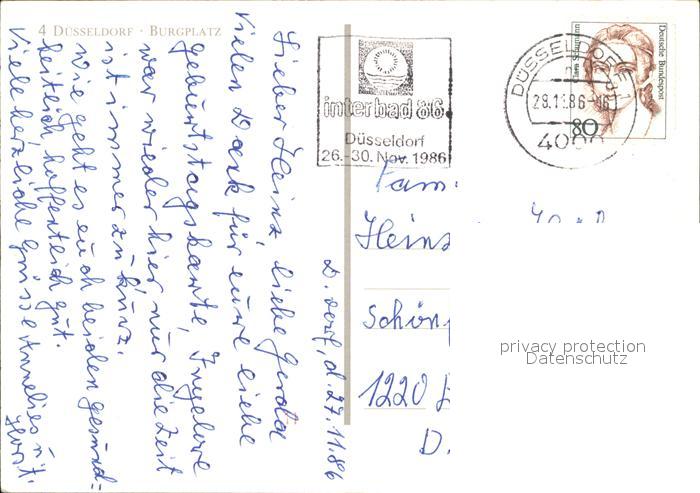 4 DÜSSELDORF · BURGPLATZ
D. dorf, d. 27.11.86
Lieber Heinz, liebe Gerda
Vielen Dank für eure liebe
Geburtstagskarte, Ingelore
war wieder hier, nur die Zeit
ist immer zu kurz.
Wie geht es euch beiden gesund=
heitlich hoffentlich gut.
Viele herzliche Grüsse Annelies u.
Horst.
interbad 86
Düsseldorf
26.-30. Nov. 1986
DÜSSELDORF
28.11.86
4000
Deutsche Bundespost
80
Fam.
Heinz
Schön
1220
D.
privacy protection
Datenschutz